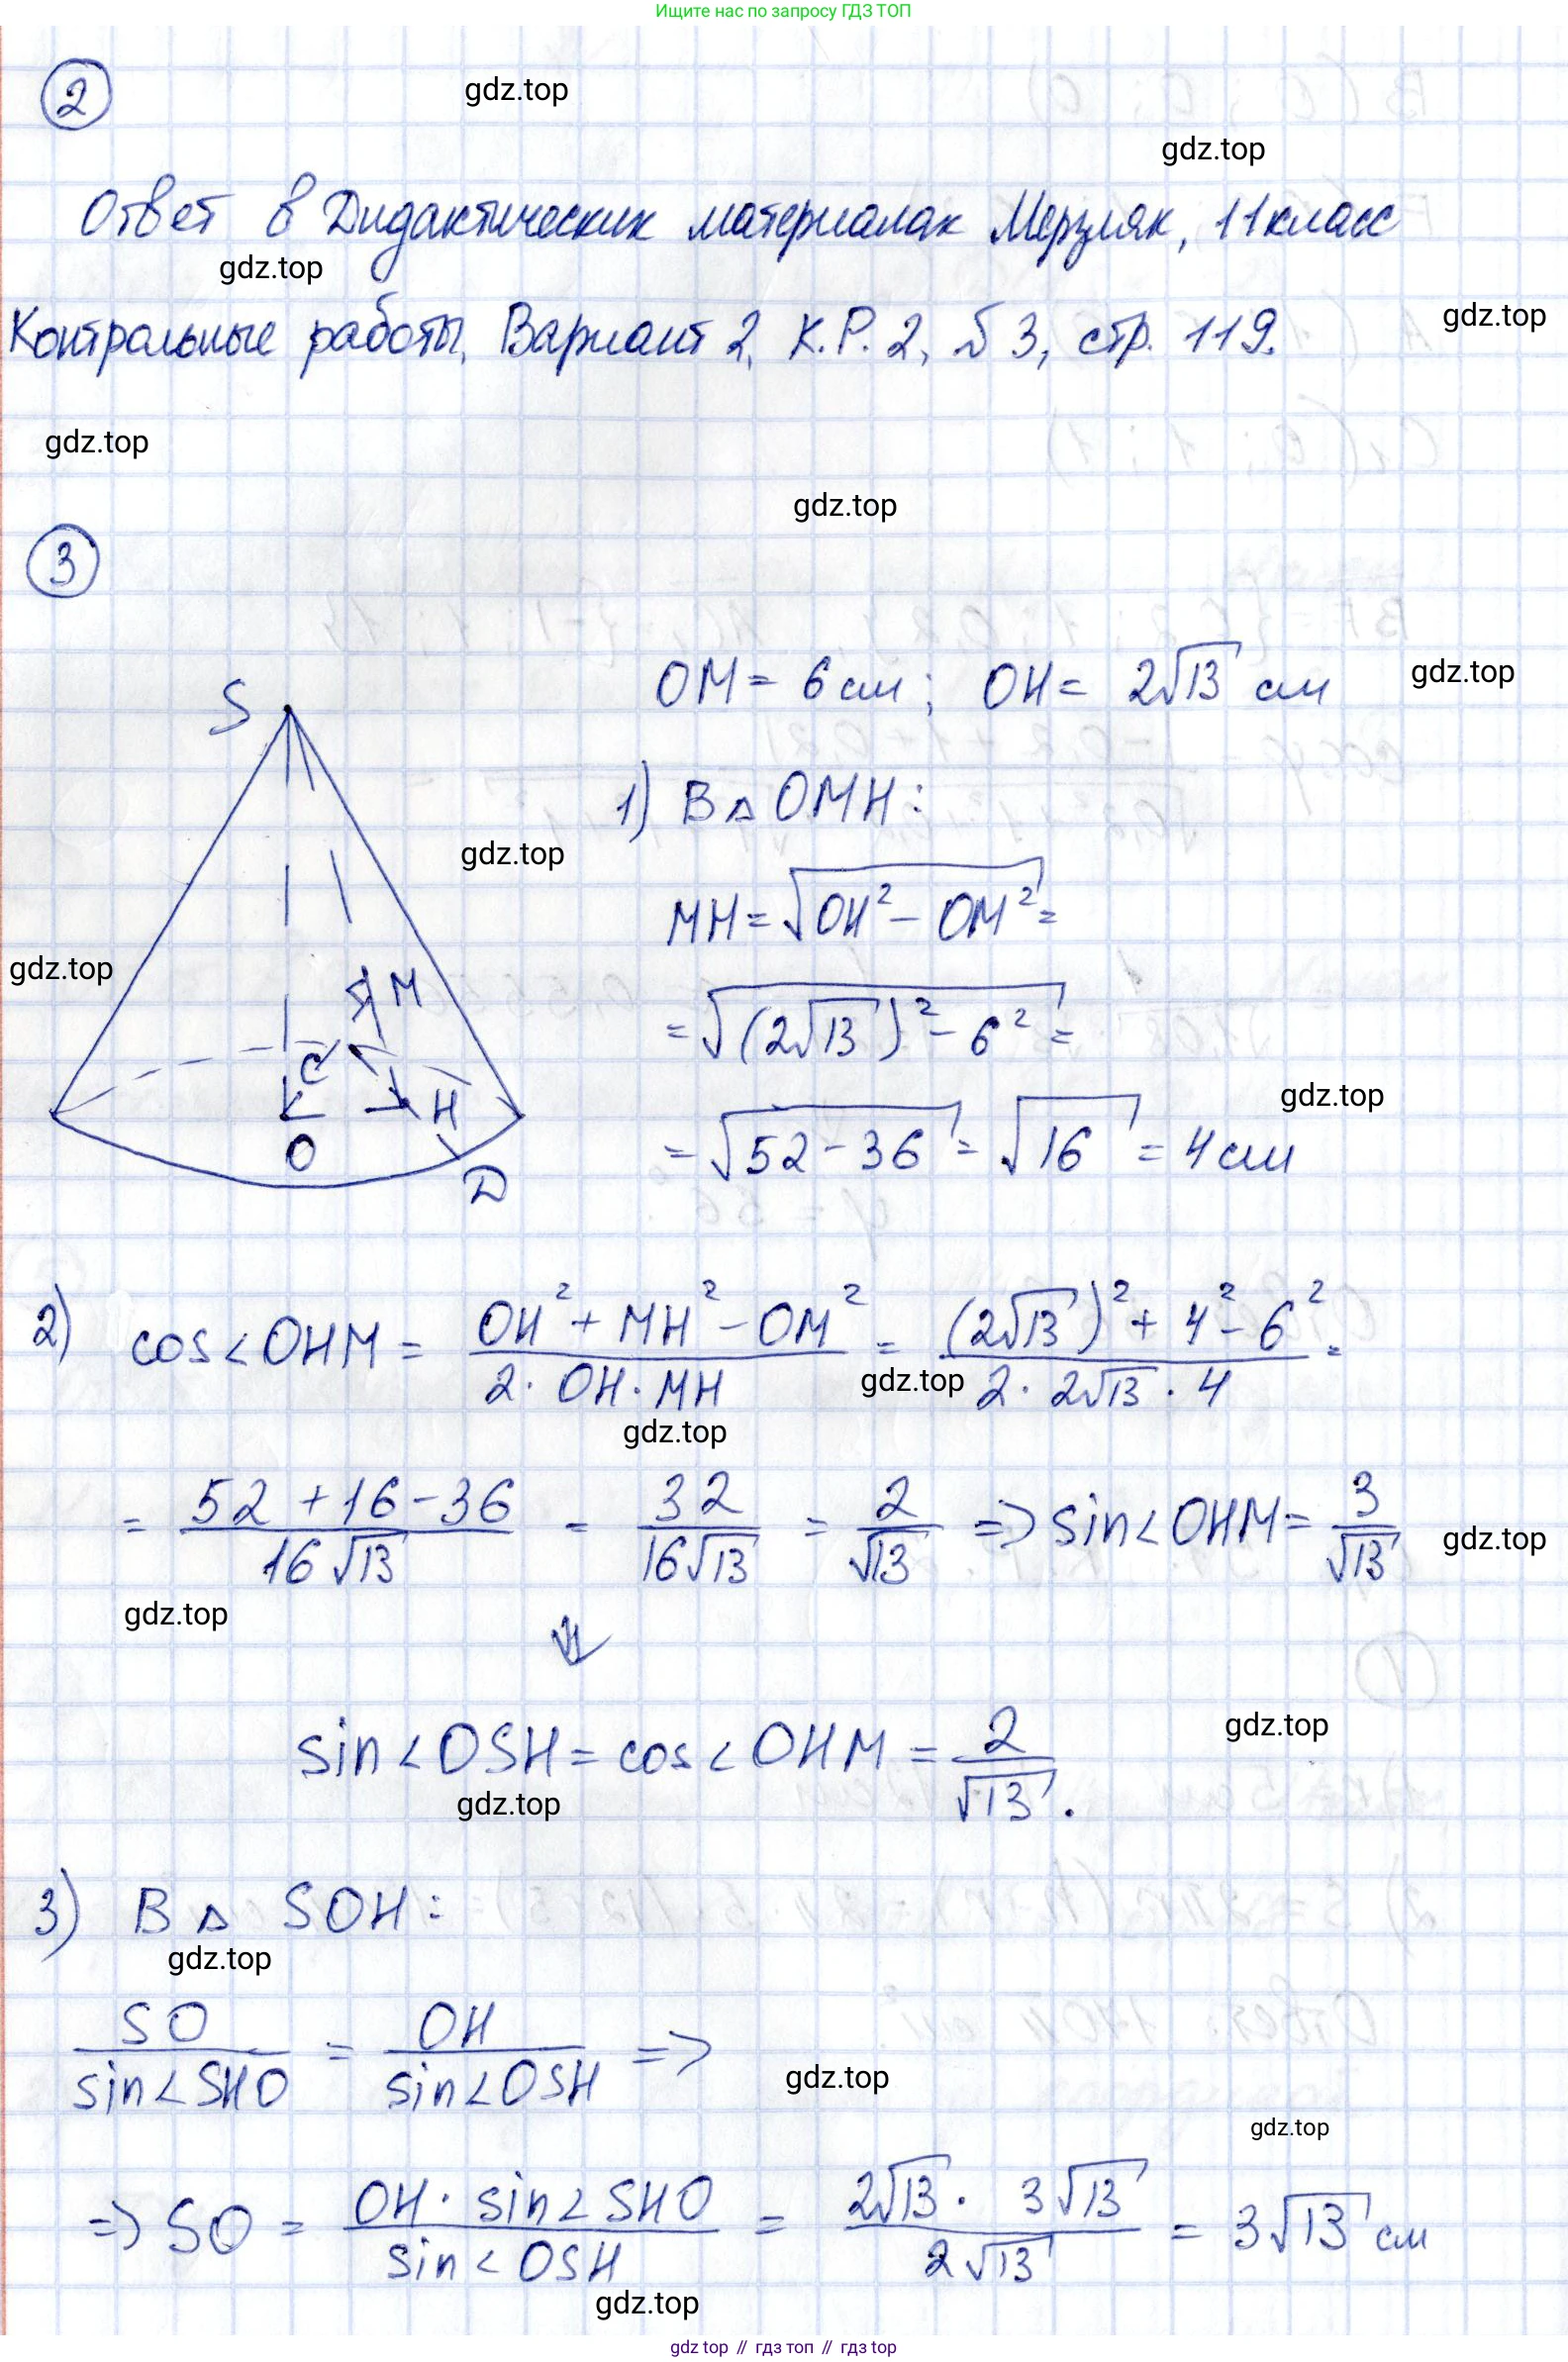 Ищите нас по запросу ГДЗ ТОП
2
gdz.top
gdz.top
Ответ в Дидактических материалах Мерзляк, 11 класс
gdz.top
Контрольные работы, Вариант 2, К.Р. 2, №3, стр. 119.
gdz.top
gdz.top
gdz.top
3
S
OM = 6 см; OH = 2√13 см
gdz.top
1) В △ OMH:
gdz.top
MH = √(OH² - OM²) =
gdz.top
M
= √((2√13)² - 6²) =
C
H
gdz.top
O
D
= √(52 - 36) = √16 = 4 см
2) cos∠OHM = (OH² + MH² - OM²)/(2·OH·MH) = ((2√13)² + 4² - 6²)/(2·2√13·4) =
gdz.top
gdz.top
= (52 + 16 - 36)/(16√13) = 32/(16√13) = 2/√13 => sin∠OHM = 3/√13
gdz.top
gdz.top
⇓
sin∠OSH = cos∠OHM = 2/√13.
gdz.top
gdz.top
3) В △ SOH:
gdz.top
SO/sin∠SHO = OH/sin∠OSH =>
gdz.top
gdz.top
=> SO = (OH·sin∠SHO)/(sin∠OSH) = (2√13·3√13)/(2√13) = 3√13 см
gdz.top
gdz top // гдз топ // гдз top